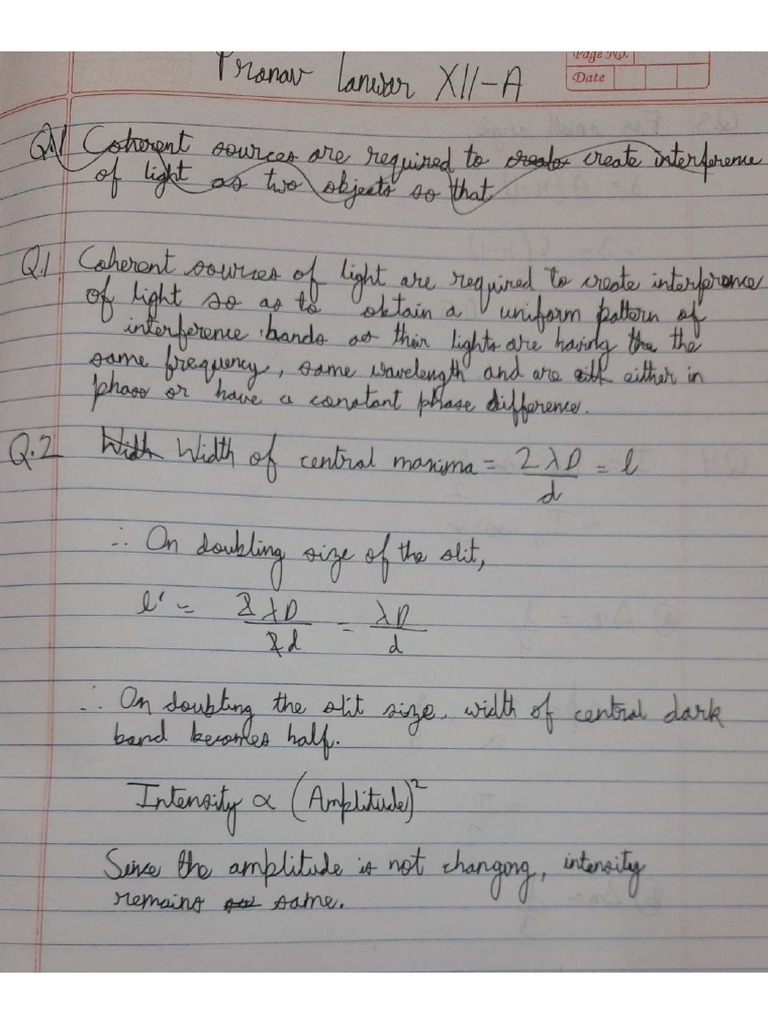 Page No.
Date
Pranav Lanwar XII-A
Q.1 Coherent sources are required to create create interference
of light as two objects so that
Q.1 Coherent sources of light are required to create interference
of light so as to obtain a uniform pattern of
interference bands as their lights are having the the
same frequency, same wavelength and are eith either in
phase or have a constant phase difference.
Q.2 Width Width of central maxima = 2λD/d = l
∴ On doubling size of the slit,
l' = 2λD/2d = λD/d
∴ On doubling the slit size, width of central dark
band becomes half.
Intensity ∝ (Amplitude)²
Since the amplitude is not changing, intensity
remains same.